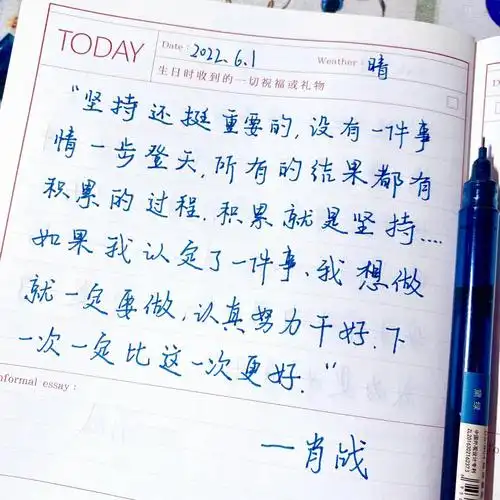 TODAY
Date: 2022.6.1 Weather: 晴
生日时收到的一切祝福或礼物
“坚持还挺重要的,没有一件事
情一步登天,所有的结果都有
积累的过程.积累就是坚持....
如果我认定了一件事、我想做
就一定要做,认真努力干好.下
一次一定比这一次更好.”
nformal essay:
一肖战